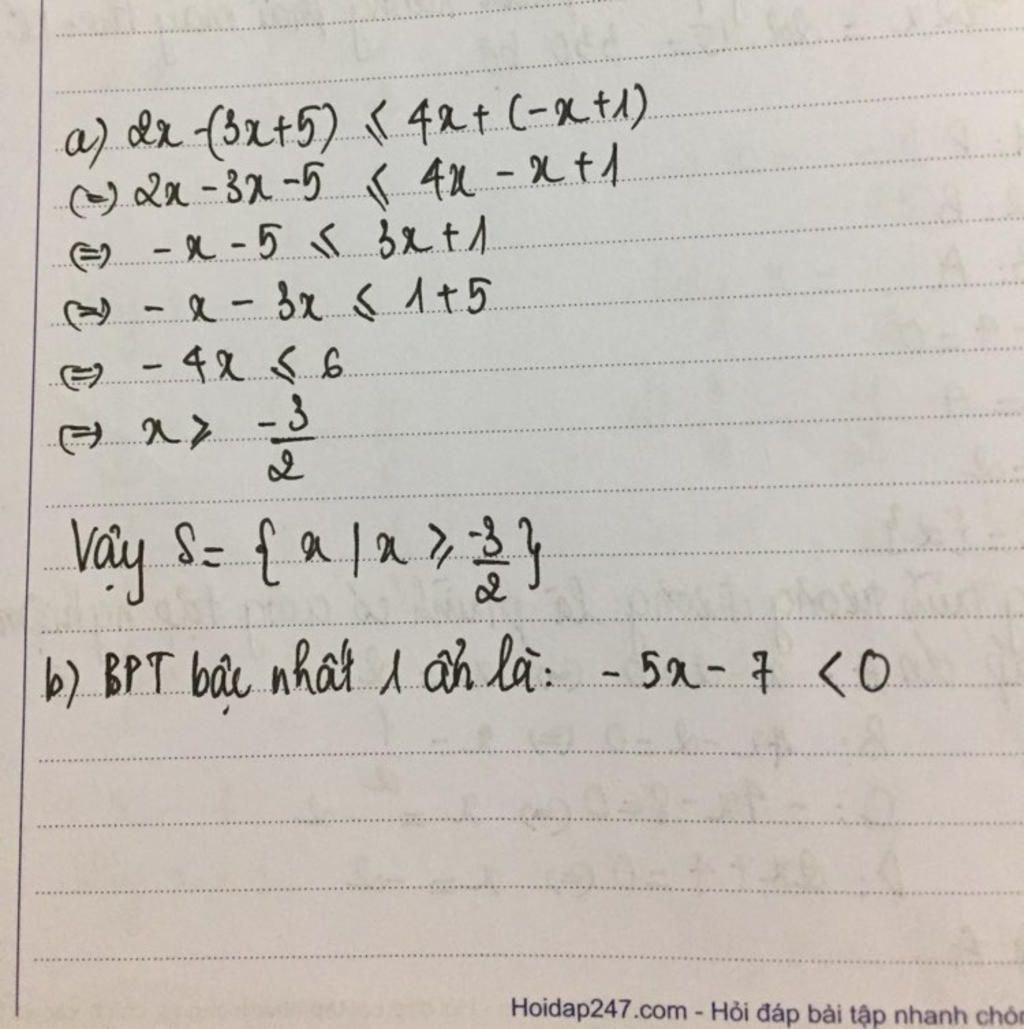 a) 2x -(3x+5) ⩽ 4x + (-x+1)
(=) 2x - 3x - 5 ⩽ 4x - x + 1
(=) - x - 5 ⩽ 3x + 1
(=) - x - 3x ⩽ 1 + 5
(=) - 4x ⩽ 6
(=) x ⩾ -3/2
Vậy S = { x | x ⩾ -3/2 }
b) BPT bậc nhất 1 ẩn là: - 5x - 7 < 0
Hoidap247.com - Hỏi đáp bài tập nhanh